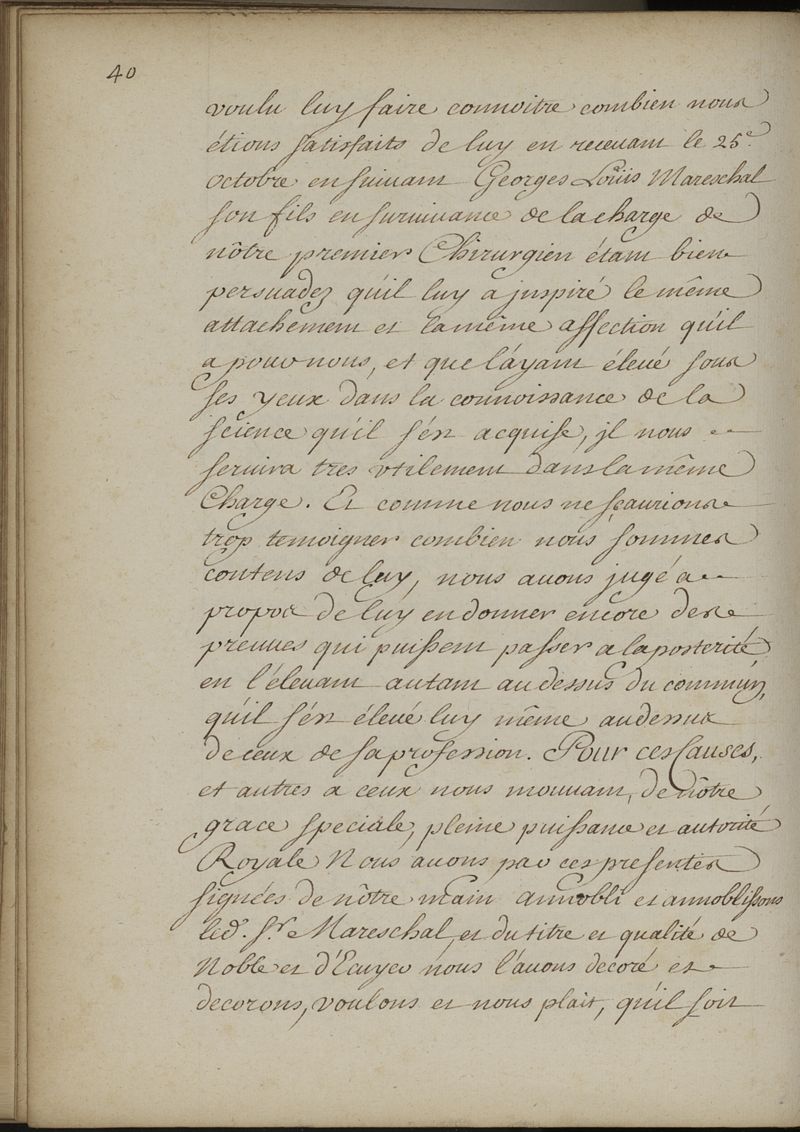 40
voulu luy faire connoitre combien nous
étions satisfaits de luy en recevant le 25.e
octobre ensuivant Georges Loüis Mareschal
son fils en survivance de la charge de
nôtre premier Chirurgien étant bien
persuadez qu'il luy a jnspiré le même
attachement et la même affection qu'il
a pour nous, et que l'ayant élevé sous
ses yeux dans la connoissance de la
science qu'il s'est acquise, jl nous
servira tres vtilement dans la même
Charge. Et comme nous ne sçaurions
trop temoigner combien nous sommes
contens de luy, nous avons jugé a
propos de luy en donner encore des
preuves qui puissent passer a la posterité
en l'élevant autant au dessus du commun,
qu'il s'est élevé luy même au dessus
de ceux de sa profession. Pour ces Causes,
et autres a ceux nous mouvant, de nôtre
grace speciale, pleine puissance et autorité
Royale Nous avons par ces presentes
signées de nôtre main annobli et annoblissons
led. S.r Mareschal, et du titre et qualité de
Noble et d'Ecuyer nous l'avons decoré et
decorons, voulons et nous plait, qu'il soit